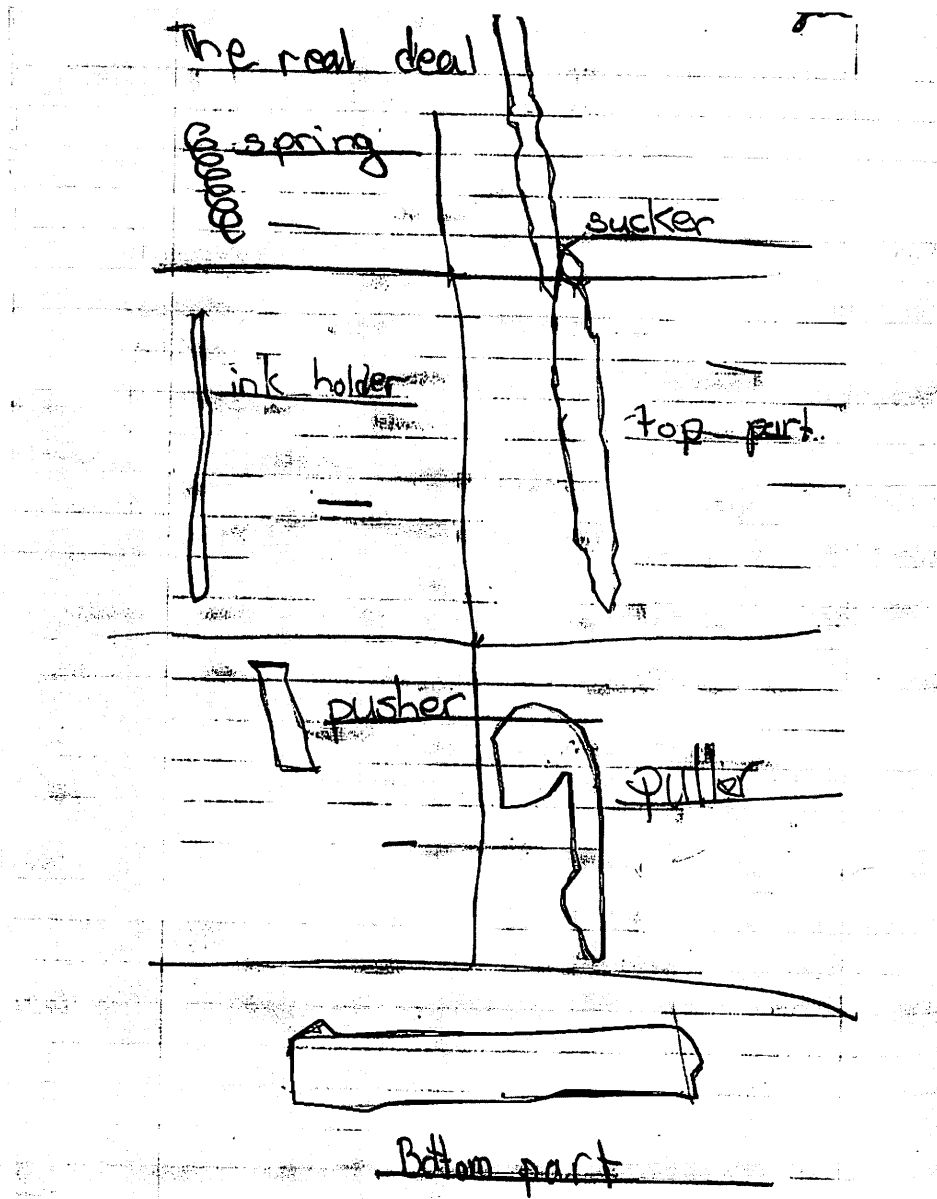 The real deal
spring
sucker
ink holder
top part.
pusher
puller
Bottom part